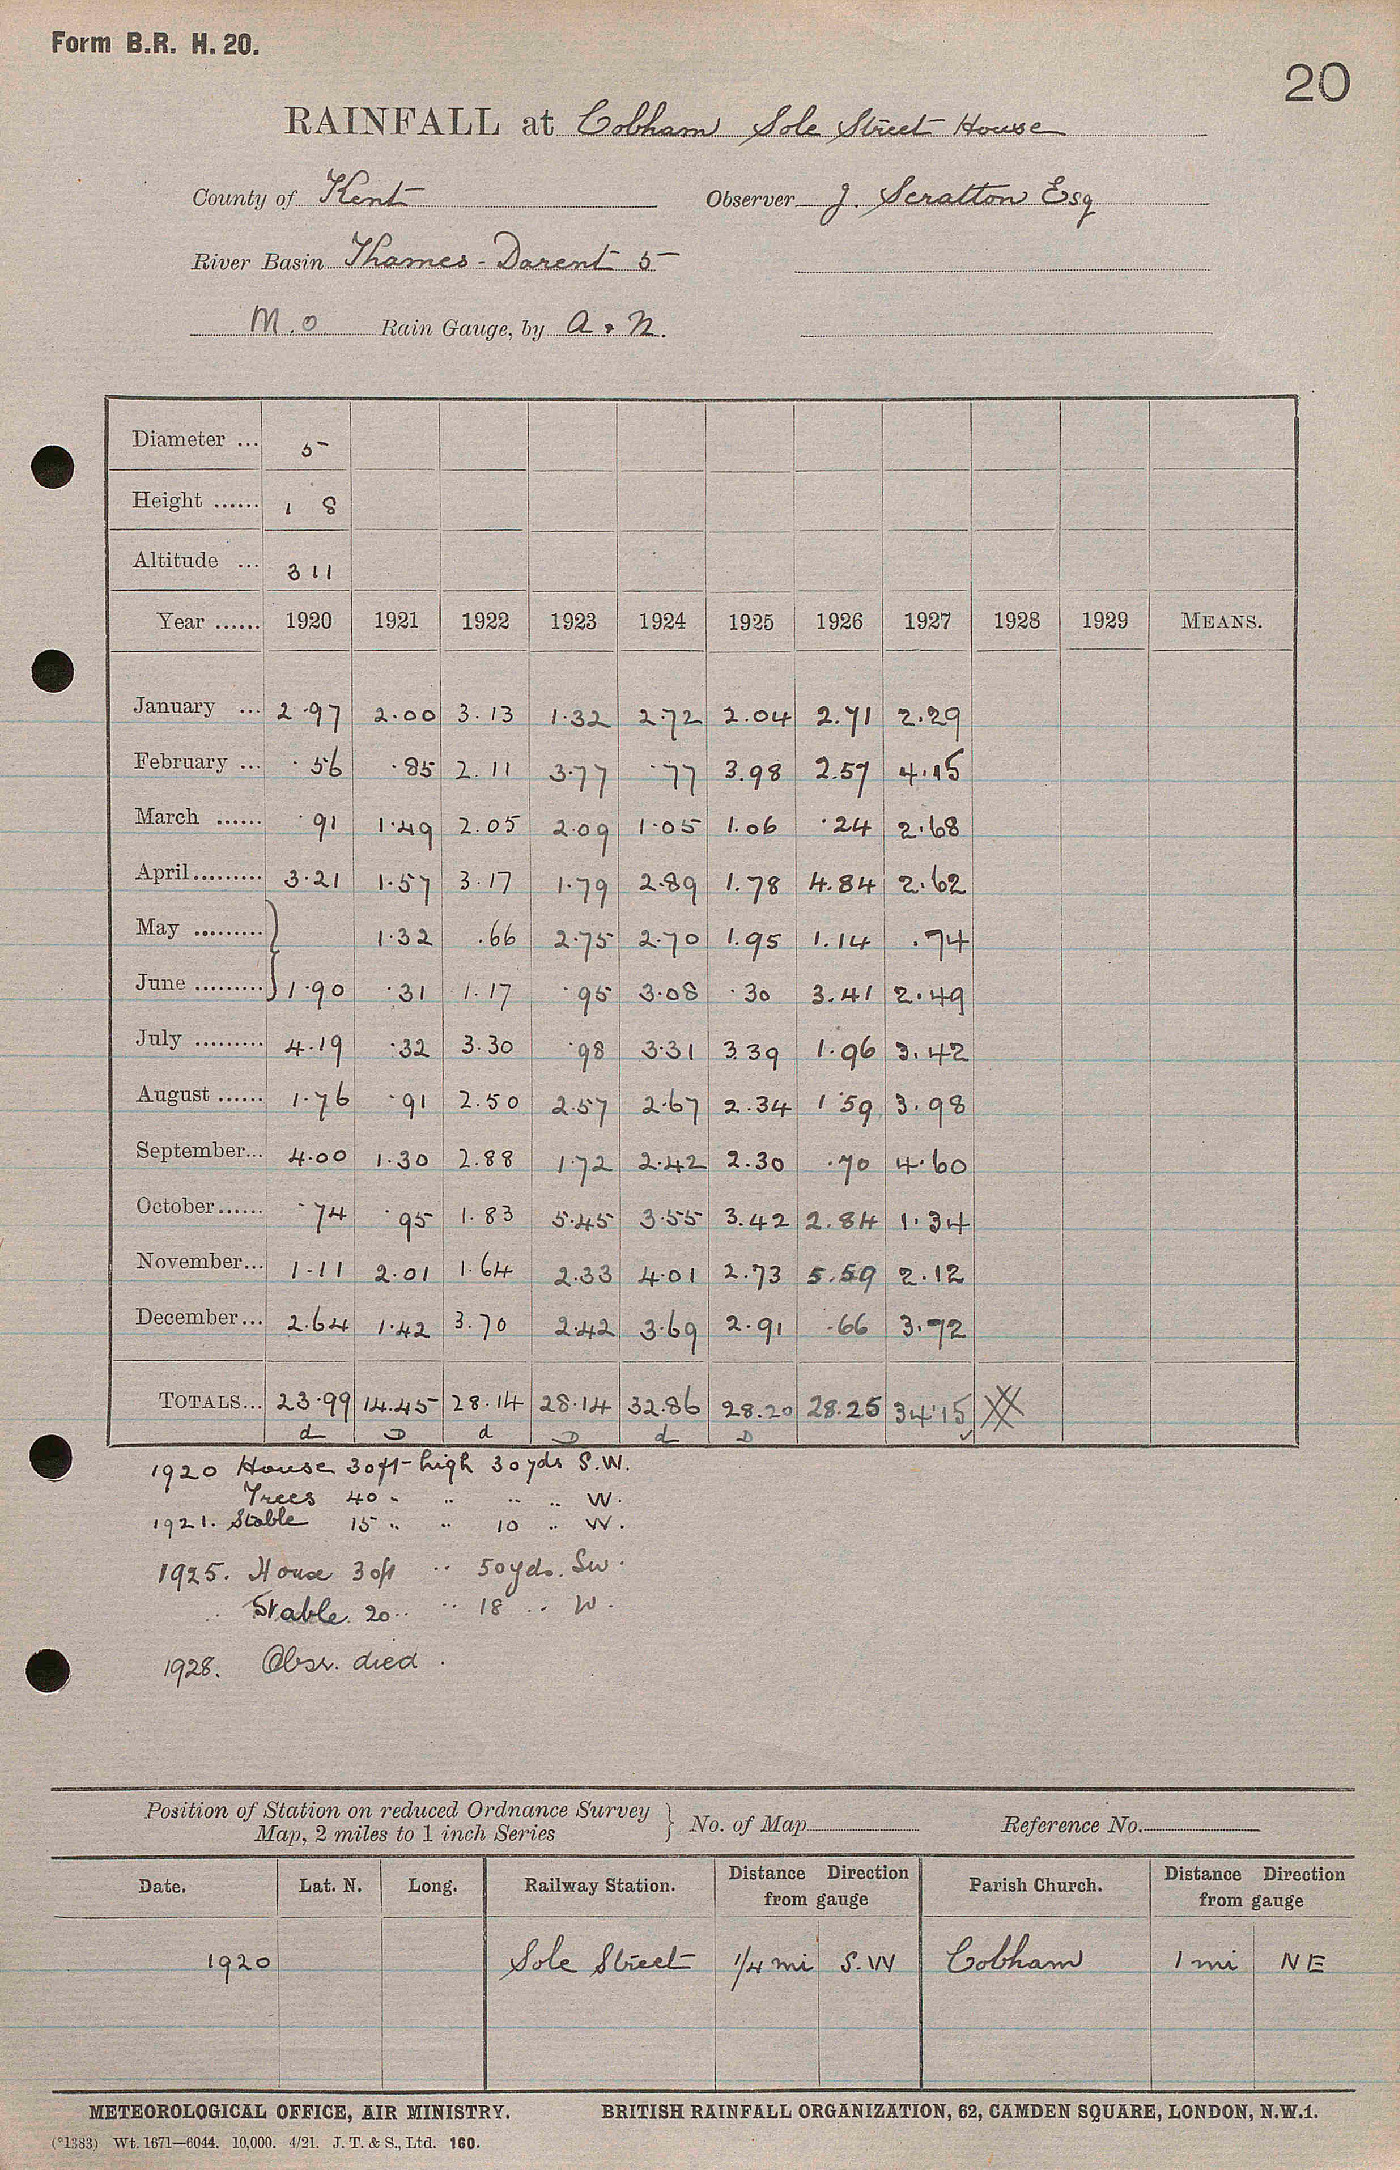 Form B.R. H. 20.
20
RAINFALL at Cobham Sole Street House
County of Kent Observer J. Scratton Esq
River Basin Thames - Darent 5
M.O Rain Gauge, by A & N.
Diameter ... 5
Height ...... 1 8
Altitude ... 311
Year ...... 1920 1921 1922 1923 1924 1925 1926 1927 1928 1929 MEANS.
January ... 2.97 2.00 3.13 1.32 2.72 2.04 2.71 2.29
February ... .56 .85 2.11 3.77 .77 3.98 2.57 4.15
March ...... .91 1.49 2.05 2.09 1.05 1.06 .24 2.68
April......... 3.21 1.57 3.17 1.79 2.89 1.78 4.84 2.62
May ......... } 1.32 .66 2.75 2.70 1.95 1.14 .74
June ......... 1.90 .31 1.17 .95 3.08 .30 3.41 2.49
July ......... 4.19 .32 3.30 .98 3.31 3.39 1.96 3.42
August ...... 1.76 .91 2.50 2.57 2.67 2.34 1.59 3.98
September... 4.00 1.30 2.88 1.72 2.42 2.30 .70 4.60
October...... .74 .95 1.83 5.45 3.55 3.42 2.84 1.34
November... 1.11 2.01 1.64 2.33 4.01 2.73 5.59 2.12
December... 2.64 1.42 3.70 2.42 3.69 2.91 .66 3.72
TOTALS... 23.99 14.45 28.14 28.14 32.86 28.20 28.25 34.15
d D d D d D
1920 House 30ft high 30 yds S.W.
Trees 40 " " " " W.
1921. Stable 15 " " 10 " W.
1925. House 30ft " 50yds. SW.
" Stable 20 " " 18 " W.
1928. Obsr. died.
Position of Station on reduced Ordnance Survey
Map, 2 miles to 1 inch Series } No. of Map Reference No.
Date. Lat. N. Long. Railway Station. Distance Direction from gauge Parish Church. Distance Direction from gauge
1920 Sole Street 1/4 mi S.W Cobham 1 mi NE
METEOROLOGICAL OFFICE, AIR MINISTRY. BRITISH RAINFALL ORGANIZATION, 62, CAMDEN SQUARE, LONDON, N.W.1.
(*1383) Wt. 1671—6044. 10,000. 4/21. J. T. & S., Ltd. 160.